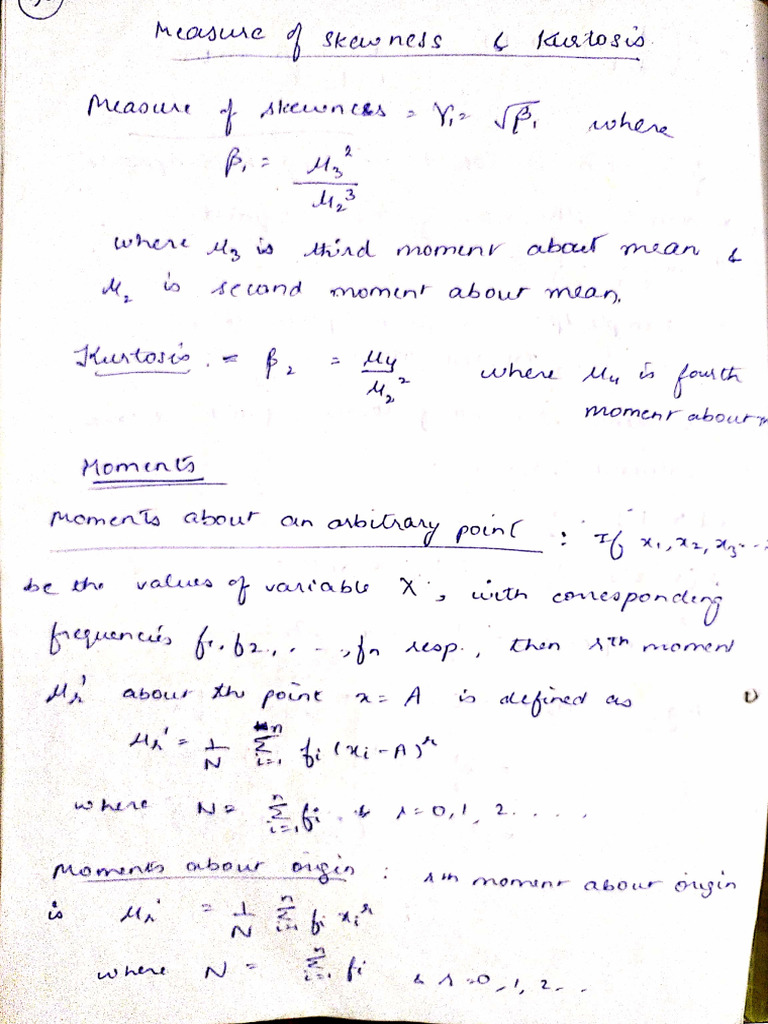 Measure of skewness & Kurtosis
Measure of skewness = γ₁ = √β₁ where
β₁ = μ₃² / μ₂³
where μ₃ is third moment about mean &
μ₂ is second moment about mean.
Kurtosis = β₂ = μ₄ / μ₂² where μ₄ is fourth
moment about
Moments
Moments about an arbitrary point : If x₁, x₂, x₃...
be the values of variable X, with corresponding
frequencies f₁, f₂, ..., fn resp., then rth moment
μr' about the point x = A is defined as
μr' = 1/N Σᵢ₌₁ⁿ fi (xi - A)^r
where N = Σᵢ₌₁ⁿ fi & r = 0, 1, 2 ....
Moments about origin : rth moment about origin
is μr' = 1/N Σᵢ₌₁ⁿ fi xi^r
where N = Σᵢ₌₁ⁿ fi & r = 0, 1, 2...